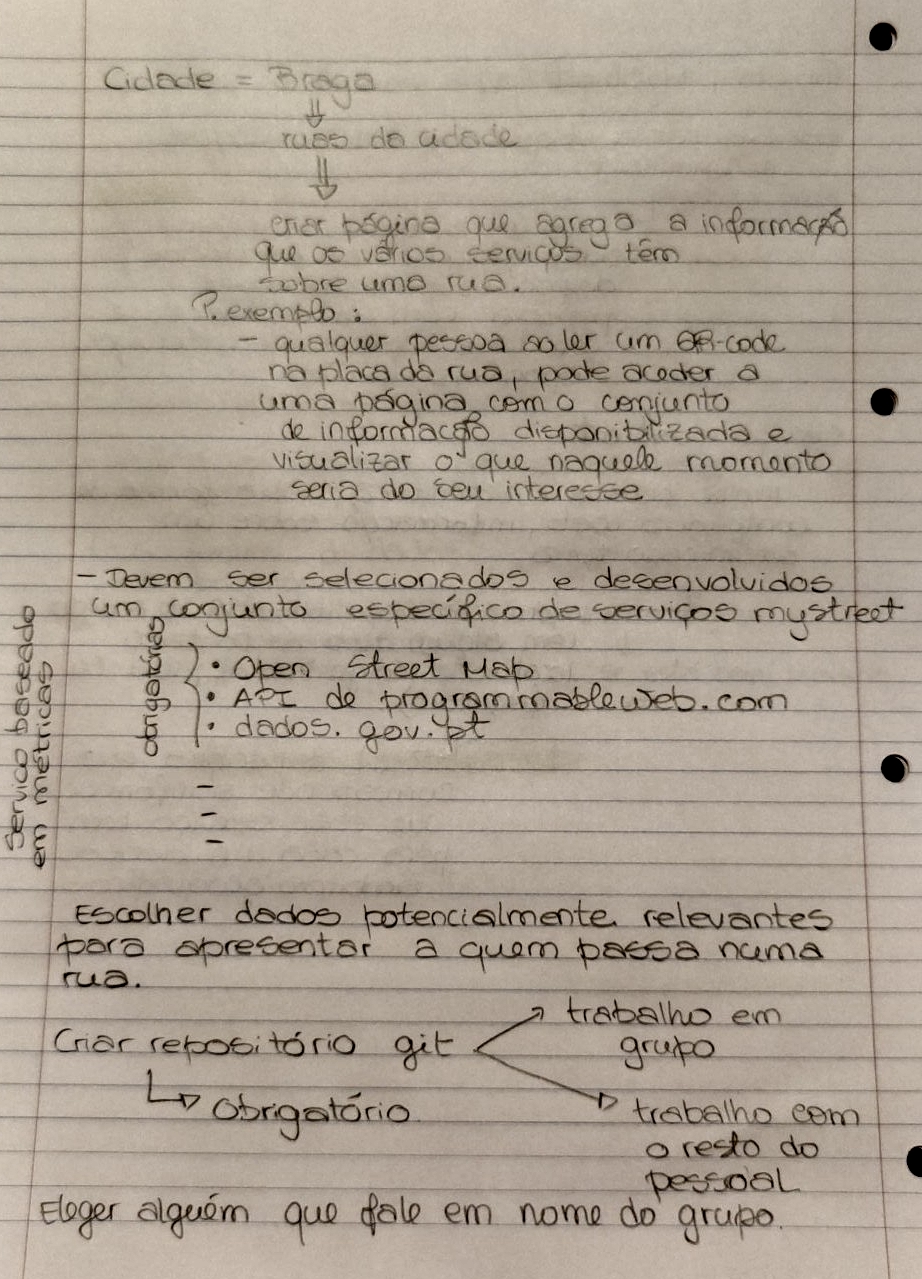 Cidade = Braga
⇓
ruas da cidade
⇓
criar página que agrega a informação
que os vários serviços têm
sobre uma rua.
P. exemplo:
- qualquer pessoa ao ler um QR-code
na placa da rua, pode aceder a
uma página com o conjunto
de informação disponibilizada e
visualizar o que naquele momento
seria do seu interesse
- Devem ser selecionados e desenvolvidos
um conjunto específico de serviços mystreet
Serviço baseado
em métricas
obrigatórias
• Open Street Map
• API de programmableweb.com
• dados.gov.pt
-
-
-
Escolher dados potencialmente relevantes
para apresentar a quem passa numa
rua.
Criar repositório git
→ trabalho em
grupo
↳ Obrigatório
→ trabalho com
o resto do
pessoal
Eleger alguém que fale em nome do grupo.